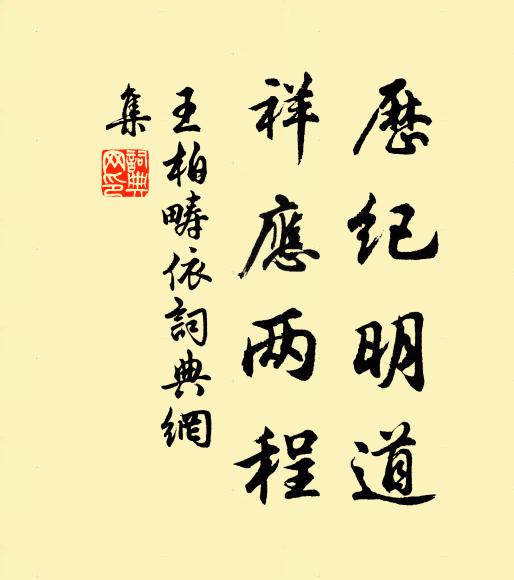 歷纪明道
祥應两程
王柏疇依詞典網
集
詞典
网印